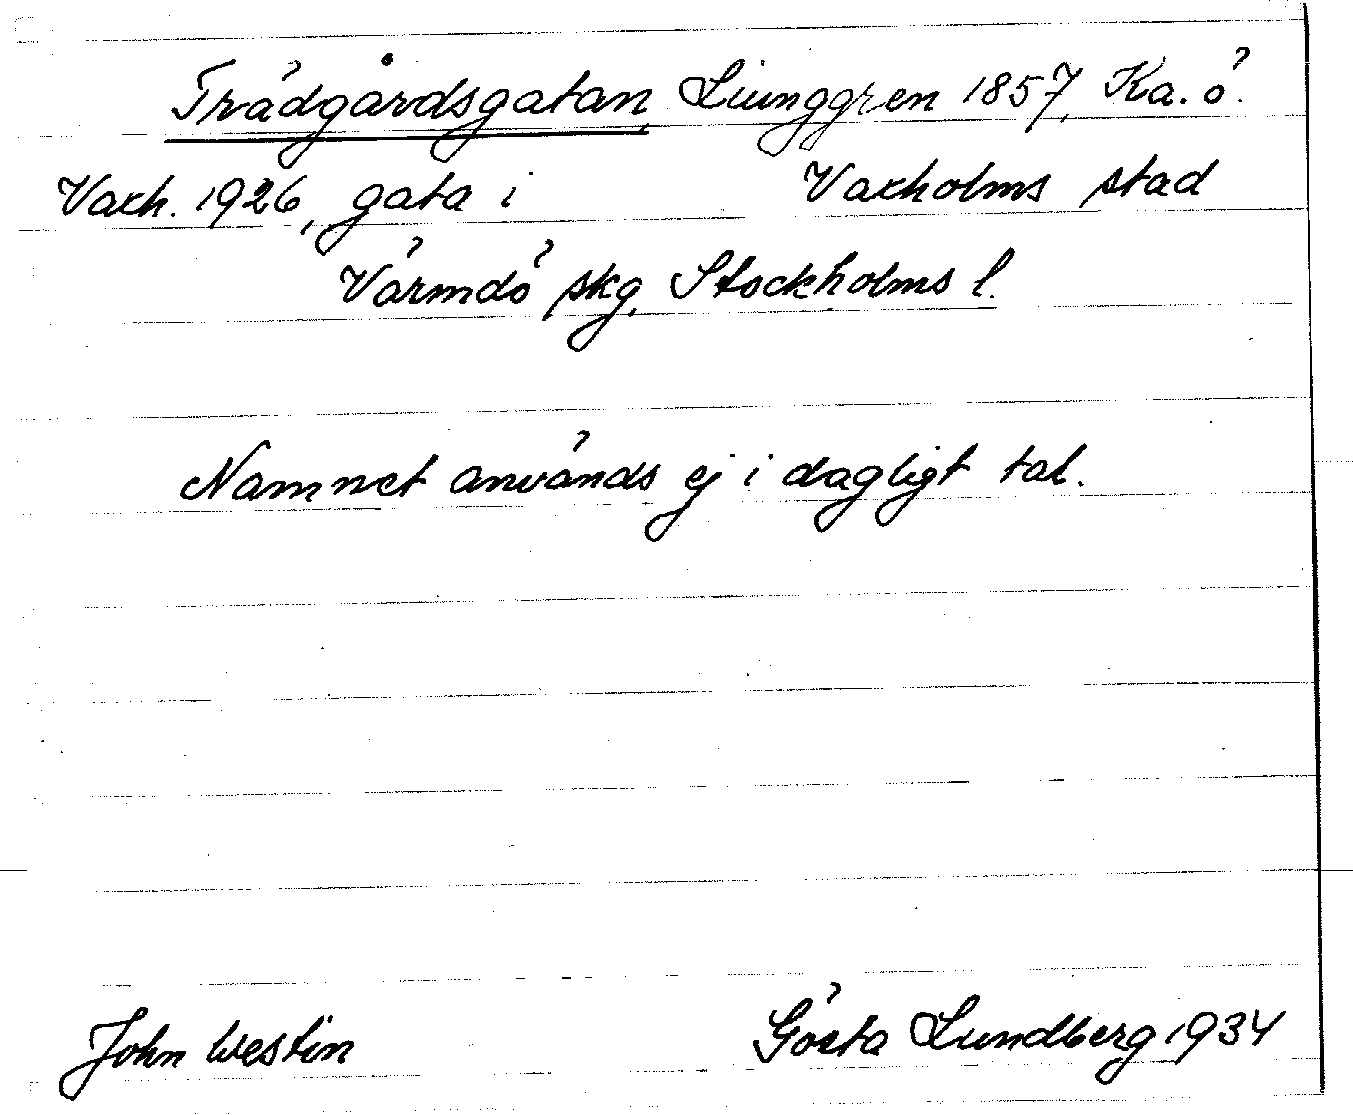 Trädgårdsgatan, Liunggren 1857, Ka. ö.
Vaxh. 1926, gata i Vaxholms stad
Värmdö skg, Stockholms l.
Namnet används ej i dagligt tal.
John Westin Gösta Lundberg 1934